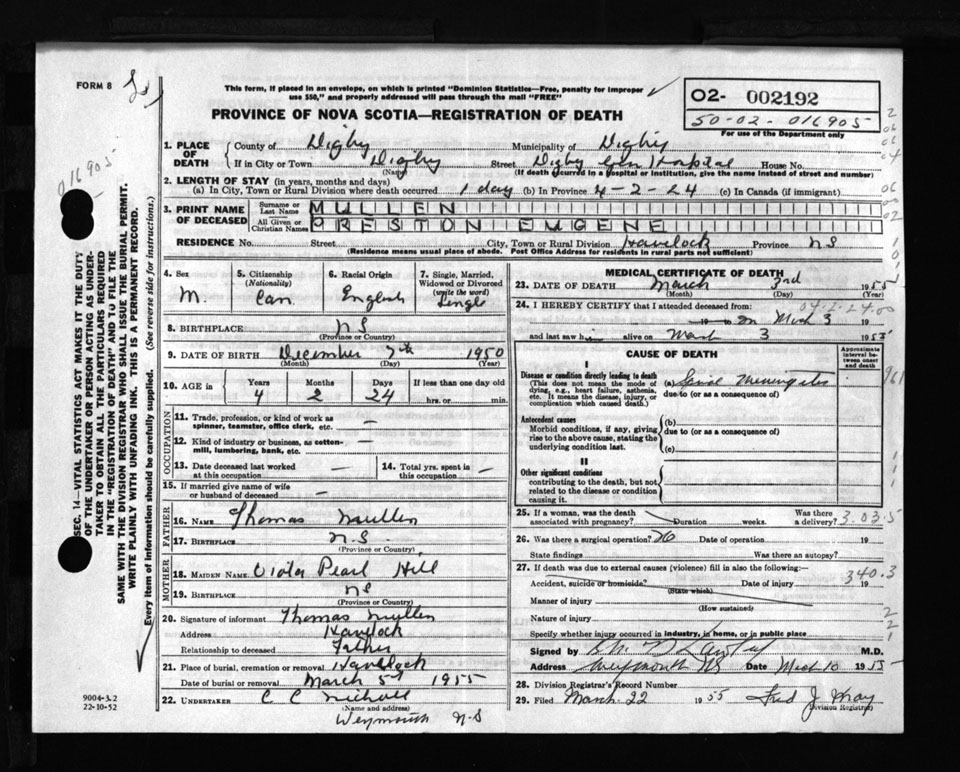 FORM 8
This form, if placed in an envelope, on which is printed "Dominion Statistics—Free, penalty for improper
use $50," and properly addressed will pass through the mail "FREE"
PROVINCE OF NOVA SCOTIA—REGISTRATION OF DEATH
O2- 002192
50-02-016905
For use of the Department only
016905
1. PLACE OF DEATH
County of Digby Municipality of Digby
If in City or Town Digby Street Digby Gen Hospital House No.
(Name) (If death occurred in a hospital or institution, give the name instead of street and number)
2. LENGTH OF STAY (in years, months and days)
(a) In City, Town or Rural Division where death occurred 1 day (b) In Province 4-2-24 (c) In Canada (if immigrant)
3. PRINT NAME OF DECEASED
Surname or Last Name MULLEN
All Given or Christian Names PRESTON EUGENE
RESIDENCE No. Street City, Town or Rural Division Havelock Province NS
(Residence means usual place of abode. Post Office Address for residents in rural parts not sufficient)
4. Sex M.
5. Citizenship (Nationality) Can
6. Racial Origin English
7. Single, Married, Widowed or Divorced (write the word) Single
8. BIRTHPLACE NS
(Province or Country)
9. DATE OF BIRTH December 7th 1950
(Month) (Day) (Year)
10. AGE in Years 4 Months 2 Days 24 If less than one day old hrs. or min.
OCCUPATION
11. Trade, profession, or kind of work as spinner, teamster, office clerk, etc. —
12. Kind of industry or business, as cotton-mill, lumbering, bank, etc. —
13. Date deceased last worked at this occupation —
14. Total yrs. spent in this occupation —
15. If married give name of wife or husband of deceased —
FATHER
16. NAME Thomas Mullen
17. BIRTHPLACE N.S.
(Province or Country)
MOTHER
18. MAIDEN NAME Viola Pearl Hill
19. BIRTHPLACE NS
(Province or Country)
20. Signature of informant Thomas Mullen
Address Havelock
Relationship to deceased Father
21. Place of burial, cremation or removal Havelock
Date of burial or removal March 5th 1955
22. UNDERTAKER C C Nichall
(Name and address)
Weymouth N-S
MEDICAL CERTIFICATE OF DEATH
23. DATE OF DEATH March 3rd 1955
(Month) (Day) (Year)
04-2-24.00
24. I HEREBY CERTIFY that I attended deceased from
19 on Mch 3 19
and last saw him alive on March 3 1955
CAUSE OF DEATH
Approximate interval between onset and death
I
Disease or condition directly leading to death
(This does not mean the mode of dying, e.g., heart failure, asthenia, etc. It means the disease, injury, or complication which caused death.)
(a) Spinal Meningitis
due to (or as a consequence of)
Antecedent causes
Morbid conditions, if any, giving rise to the above cause, stating the underlying condition last.
(b)
due to (or as a consequence of)
(c)
II
Other significant conditions
contributing to the death, but not related to the disease or condition causing it.
25. If a woman, was the death associated with pregnancy? Duration weeks. Was there a delivery? 3.03.5
26. Was there a surgical operation? No Date of operation 19
State findings Was there an autopsy?
27. If death was due to external causes (violence) fill in also the following: 340.3
Accident, suicide or homicide? Date of injury 19
(State which)
Manner of injury
(How sustained)
Nature of injury
Specify whether injury occurred in industry, in home, or in public place
Signed by M.D.
Address Weymouth NS Date Mch 10 1955
28. Division Registrar's Record Number
29. Filed March 22 1955 Fred J Wray
Division Registrar
SEC. 14—VITAL STATISTICS ACT MAKES IT THE DUTY
OF THE UNDERTAKER OR PERSON ACTING AS UNDER-
TAKER TO OBTAIN ALL THE PARTICULARS REQUIRED
IN THE "REGISTRATION OF DEATH" AND TO FILE THE
SAME WITH THE DIVISION REGISTRAR WHO SHALL ISSUE THE BURIAL PERMIT.
WRITE PLAINLY WITH UNFADING INK. THIS IS A PERMANENT RECORD.
Every item of information should be carefully supplied. (See reverse side for instructions.)
9004-3.2
22-10-52